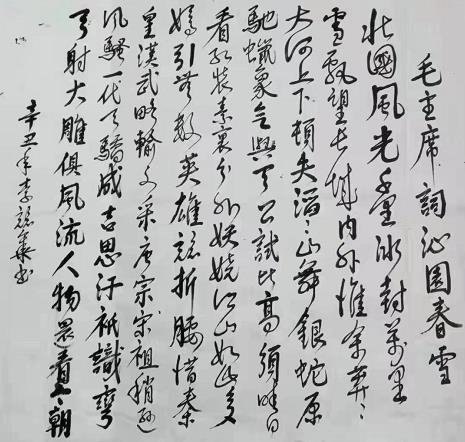 毛主席詞沁園春雪
北國風光千里冰封萬里
雪飄望长城内外惟余莽〻
大河上下頓失滔〻山舞銀蛇原
馳蠟象欲與天公試比高須晴日
看红装素裹分外妖娆江山如此多
嬌引無数英雄競折腰惜秦
皇漢武略輸文采唐宗宋祖稍遜
風騷一代天驕成吉思汗祇識彎
弓射大雕俱風流人物還看今朝
辛丑年李競華书